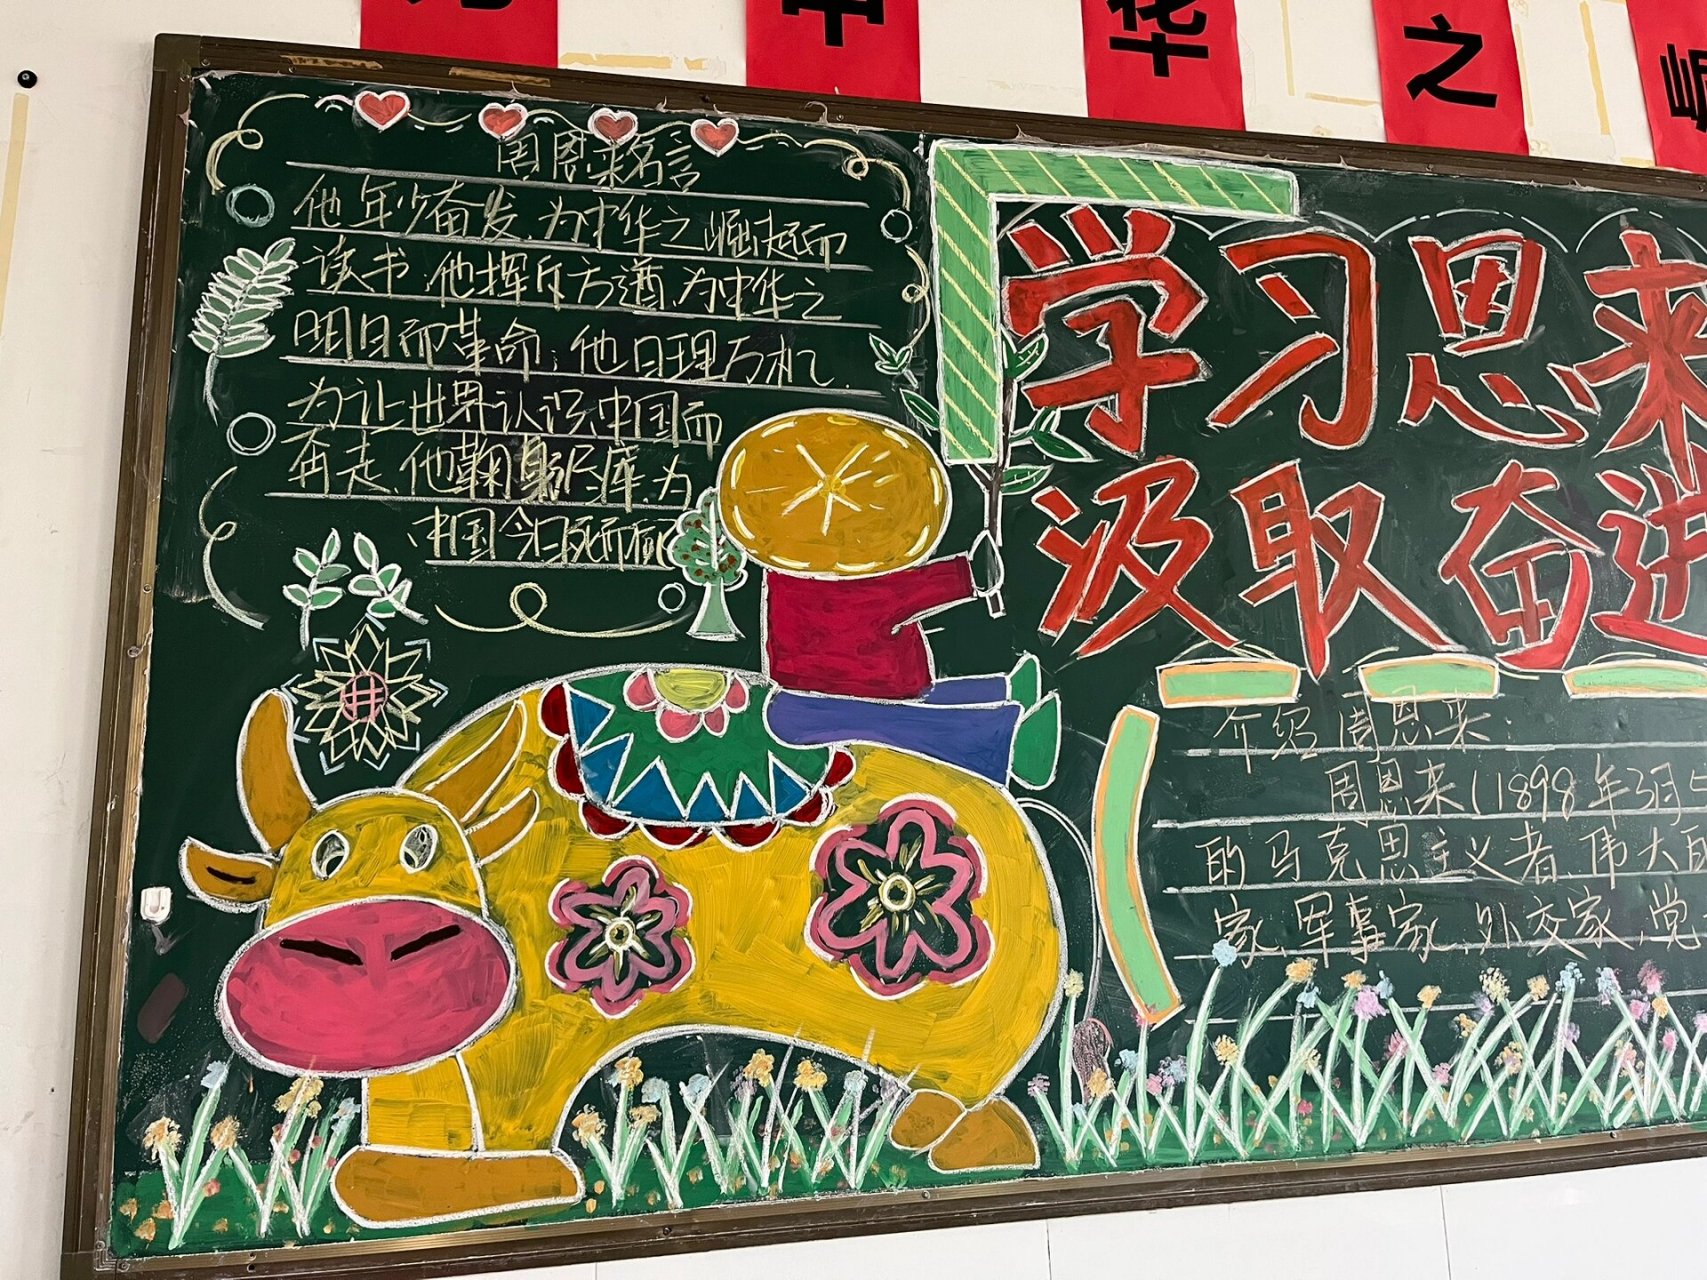 中华之崛
周恩来名言
他年少奋发、为中华之崛起而
读书；他挥斥方遒、为中华之
明日而革命；他日理万机、
为让世界认识中国而
再走、他鞠躬尽瘁、为
中国今日
学习恩来
汲取奋进
介绍周恩来：
周恩来(1898年3月
的马克思主义者、伟大
家、军事家、外交家、党